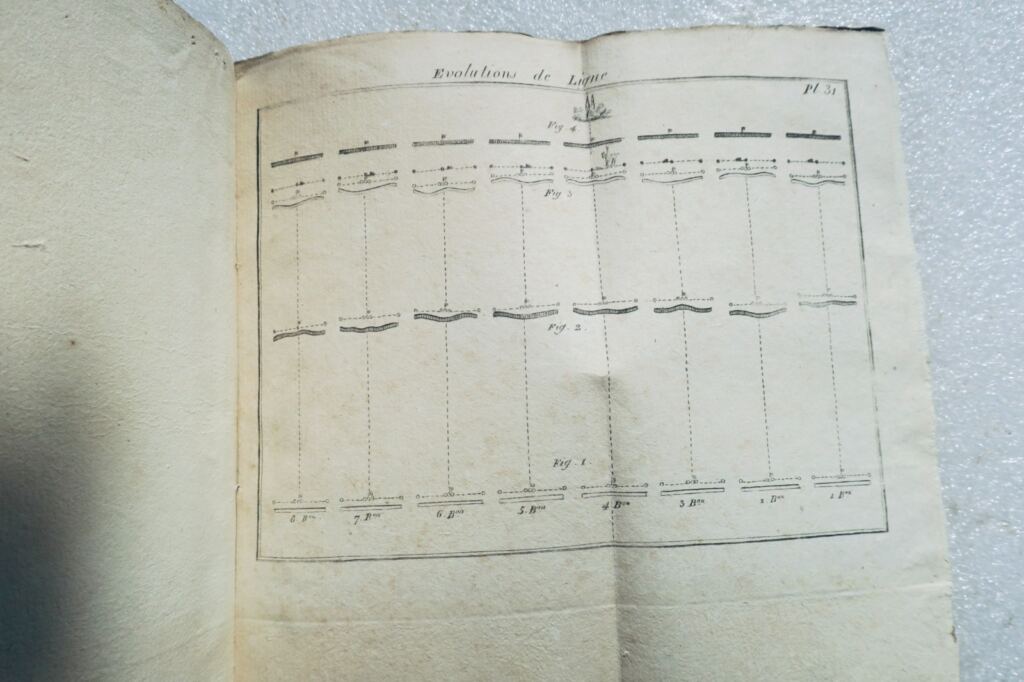 Evolutions de Ligne
Pl 31
Fig. 4
Fig 3
Fig. 2.
Fig. 1.
8. Bon
7. Bon
6. Bon
5. Bon
4. Bon
3 Bon
2. Bon
1. Bon